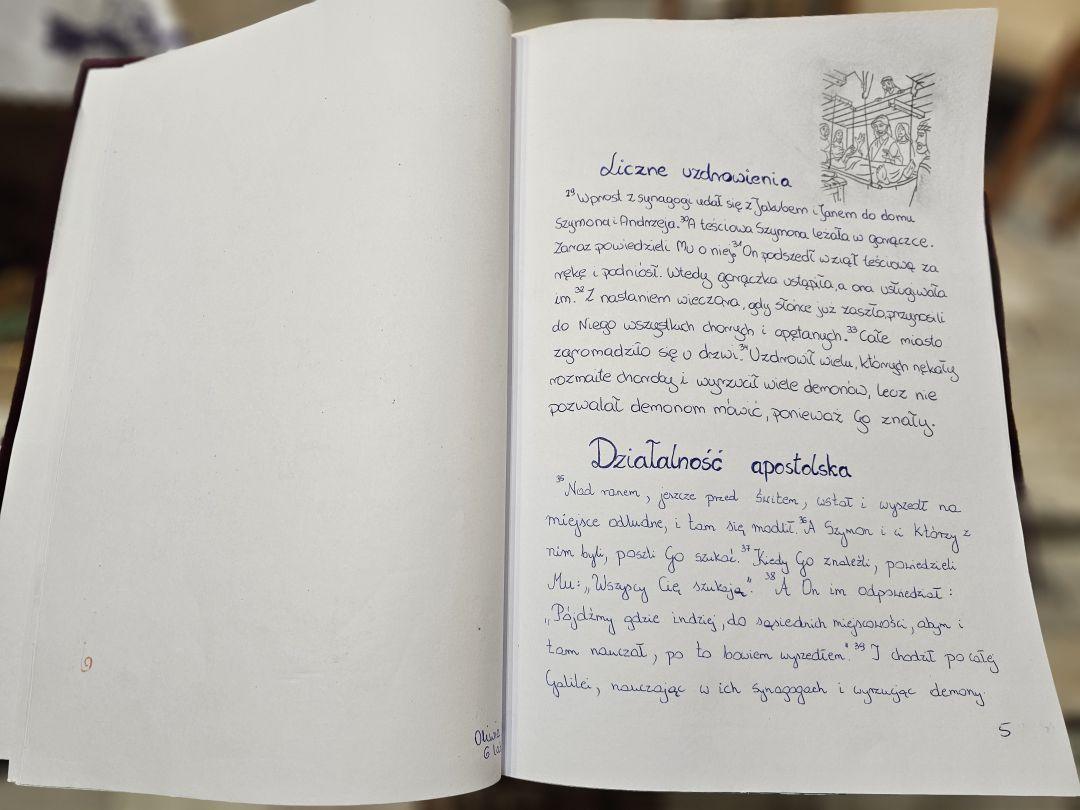 9
Oliwia
6 la
Liczne uzdrowienia
²⁹Wprost z synagogi udał się z Jakubem i Janem do domu
Szymona i Andrzeja.³⁰A teściowa Szymona leżała w gorączce.
Zaraz powiedzieli Mu o niej.³¹On podszedł wziął teściową za
rękę i podniósł. Wtedy gorączka ustąpiła, a ona usługiwała
im.³²Z nastaniem wieczora, gdy słońce już zaszło, przynosili
do Niego wszystkich chorych i opętanych.³³Całe miasto
zgromadziło się u drzwi.³⁴Uzdrowił wielu, których nękały
rozmaite choroby i wyrzucił wiele demonów, lecz nie
pozwalał demonom mówić, ponieważ Go znały.
Działalność apostolska
³⁵Nad ranem, jeszcze przed świtem, wstał i wyszedł na
miejsce odludne, i tam się modlił.³⁶A Szymon i ci którzy z
nim byli, poszli Go szukać.³⁷Kiedy Go znaleźli, powiedzieli
Mu: „Wszyscy Cię szukają".³⁸A On im odpowiedział:
„Pójdźmy gdzie indziej, do sąsiednich miejscowości, abym i
tam nauczał, po to bowiem wyszedłem".³⁹I chodził po całej
Galilei, nauczając w ich synagogach i wyrzucając demony.
5